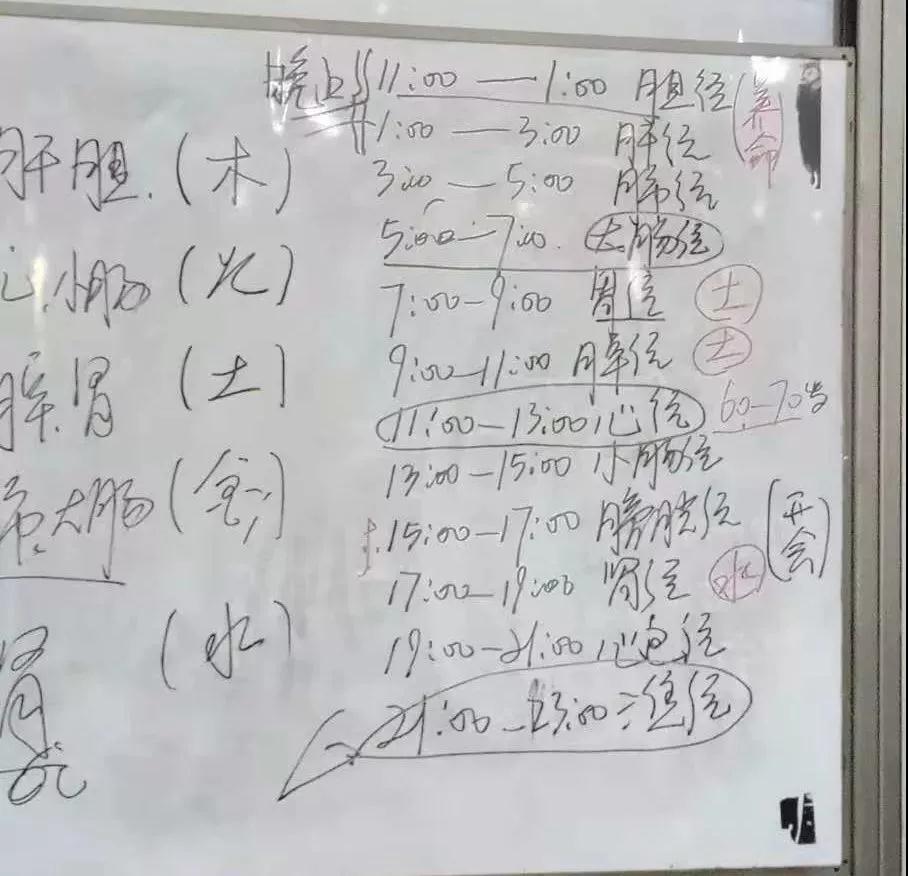 肝胆.(木)
心.小肠(火)
脾.胃(土)
大肠(金)
肾(水)
晚上 11:00—1:00 胆经(养命)
1:00—3:00 肝经
3:00—5:00 肺经
5:00—7:00. 大肠经
7:00—9:00 胃经 土
9:00—11:00 脾经 土
11:00—13:00 心经 60—70岁
13:00—15:00 小肠经
15:00—17:00 膀胱经(开会)
17:00—19:00 肾经 水
19:00—21:00 心包经
21:00—23:00 三焦经